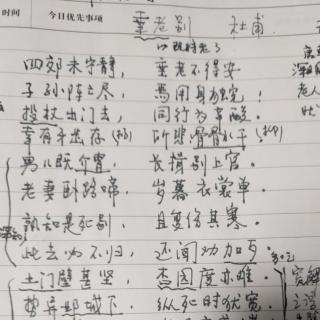 时间 今日优先事项
垂老别 杜甫
四郊未宁静, 垂老不得安
子孙阵亡尽, 焉用身独完!
投杖出门去, 同行为辛酸。
幸有牙齿存 所悲骨髓干!
男儿既介胄, 长揖别上官。
老妻卧路啼, 岁暮衣裳单。
孰知是死别, 且复伤其寒。
此去必不归, 还闻劝加
土门壁甚坚, 杏园度亦难。
势异邺城下, 纵死时犹宽。